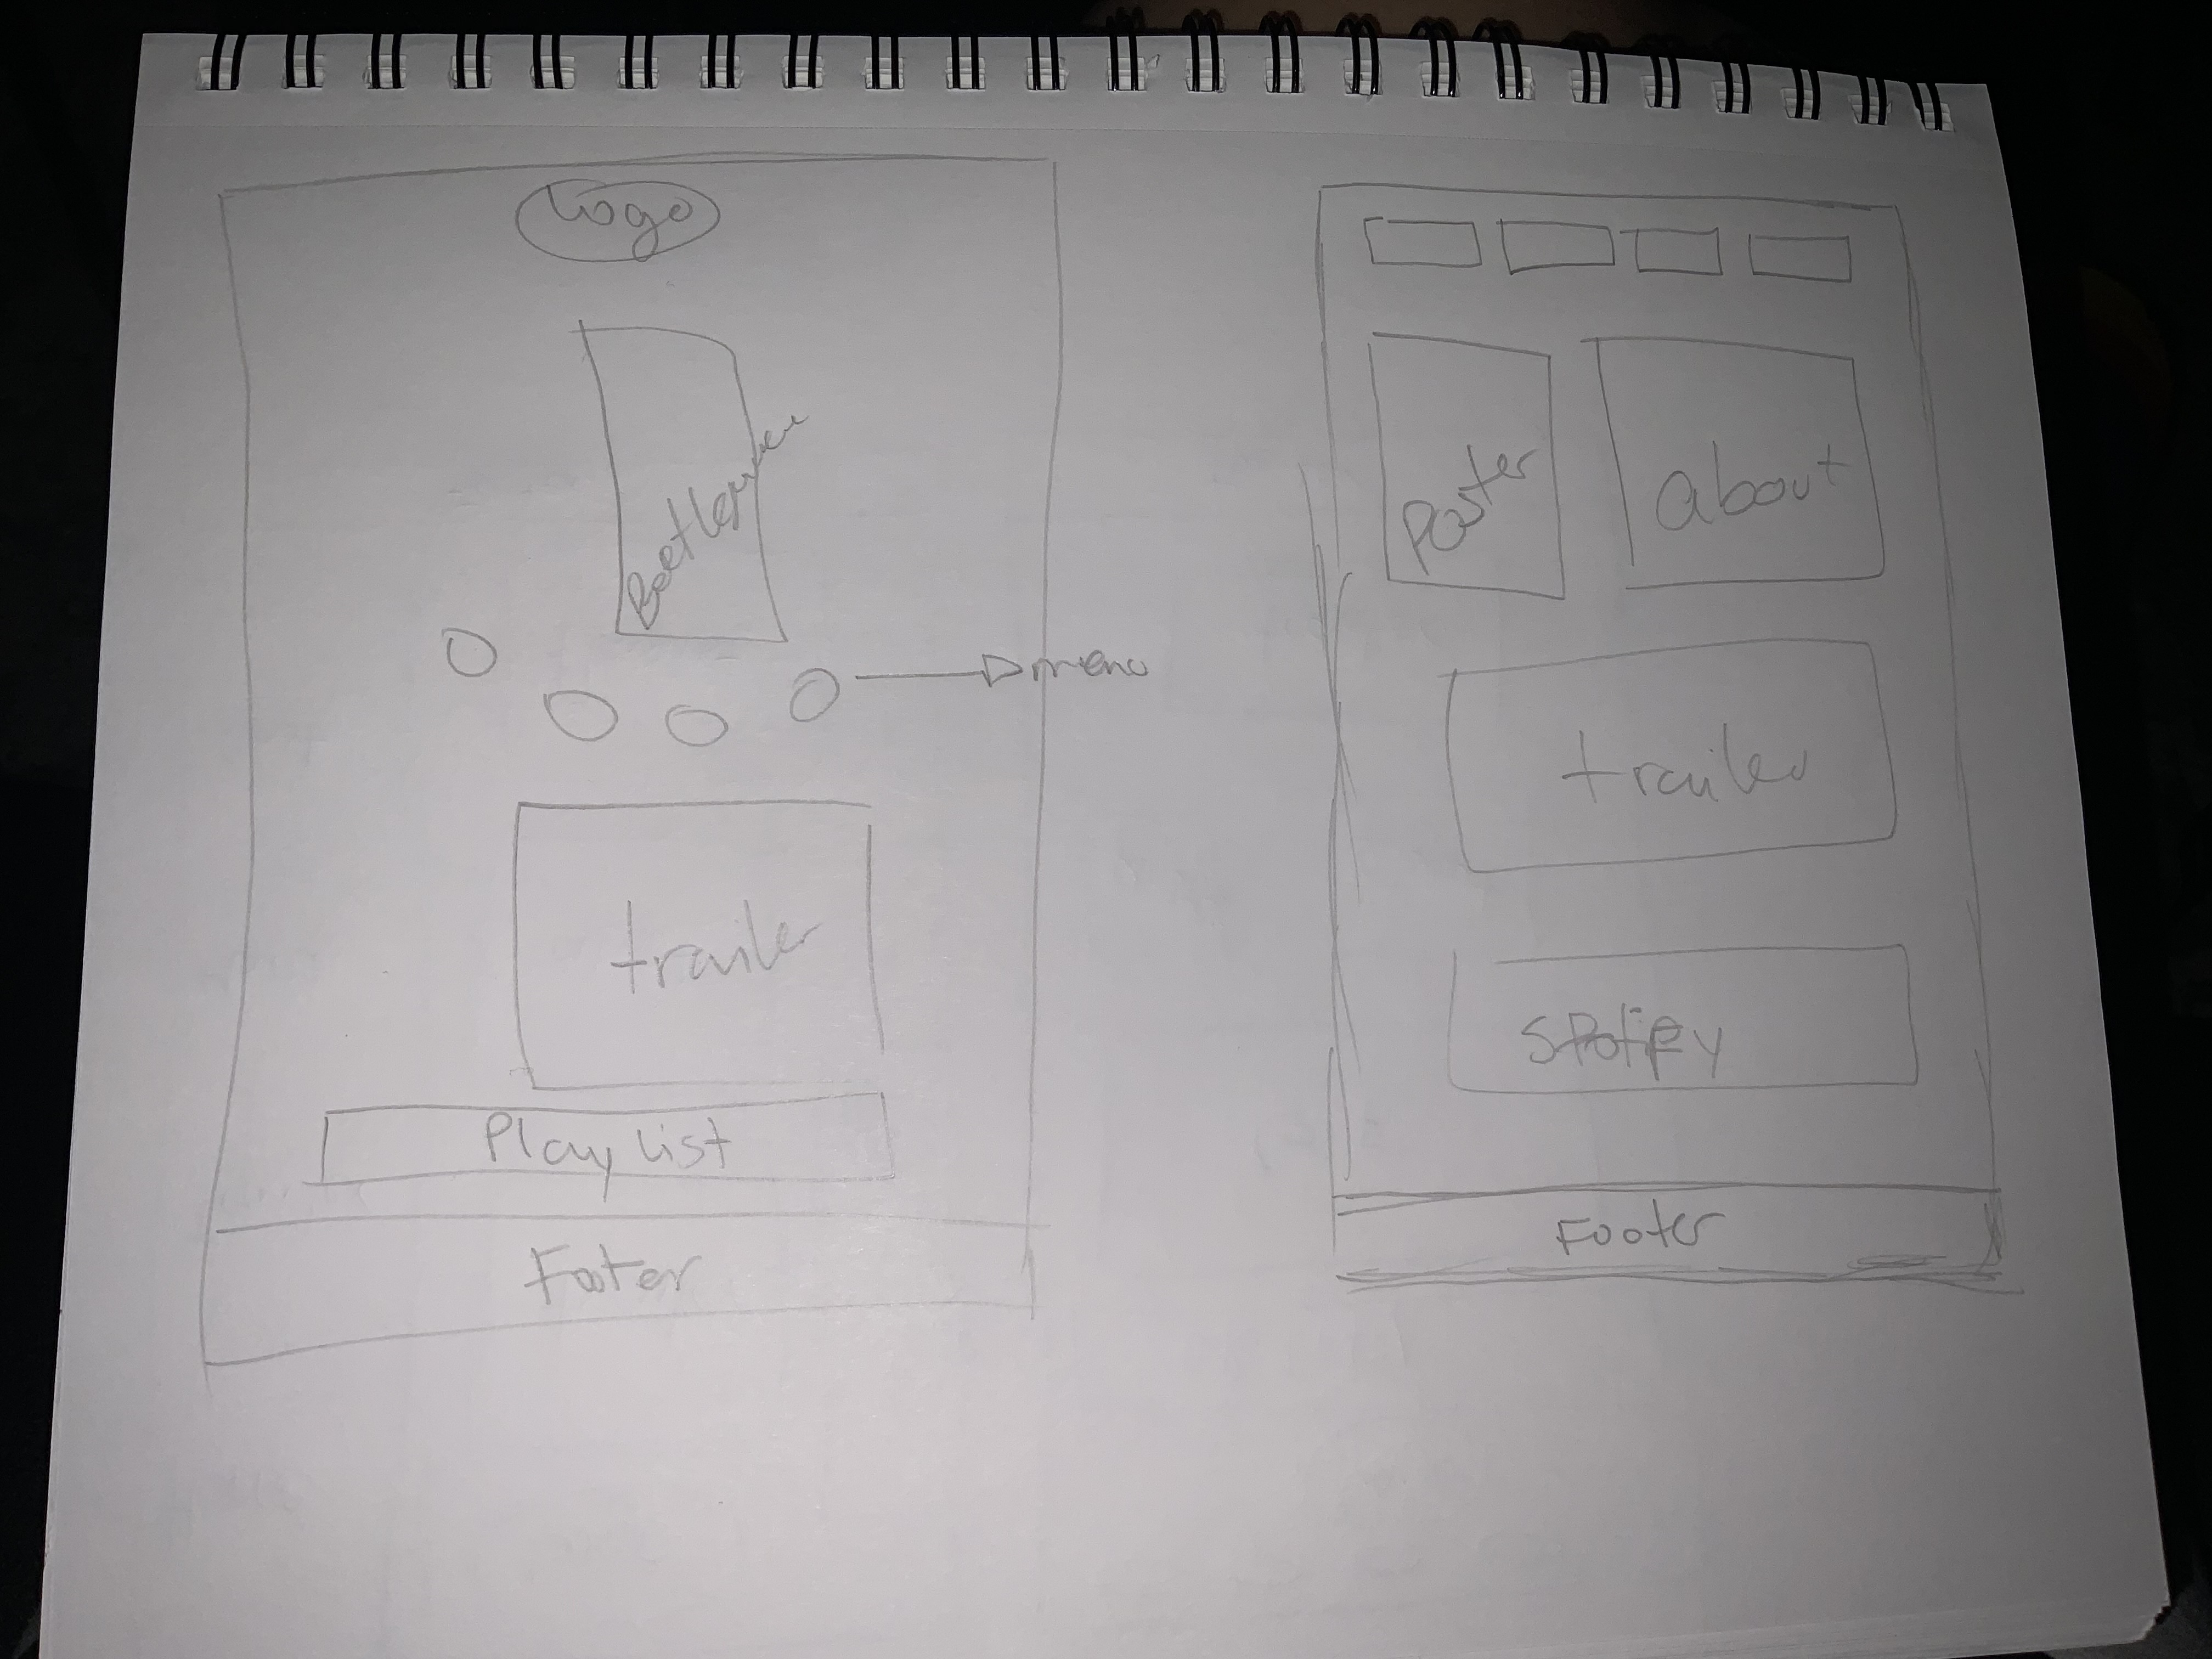 Logo
Beetlejuice
menu
trailer
Playlist
Footer
Poster
about
trailer
Spotify
Footer